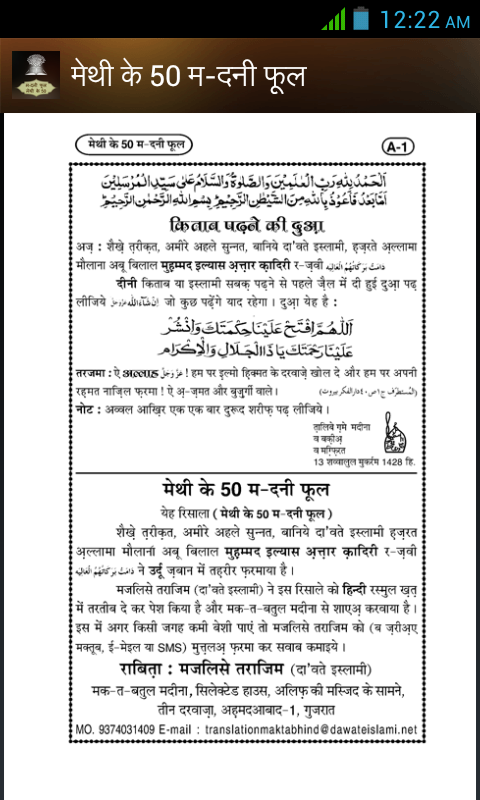 12:22 AM
मेथी के 50 म-दनी फूल
मेथी के 50 म-दनी फूल
A-1
اَلْحَمْدُ لِلّٰهِ رَبِّ الْعٰلَمِيْنَ وَالصَّلٰوةُ وَالسَّلَامُ عَلٰى سَيِّدِ الْمُرْسَلِيْنَ
اَمَّا بَعْدُ فَاَعُوْذُ بِاللّٰهِ مِنَ الشَّيْطٰنِ الرَّجِيْمِ بِسْمِ اللّٰهِ الرَّحْمٰنِ الرَّحِيْمِ
किताब पढ़ने की दुआ
अज़ : शैखे़ त़रीक़त, अमीरे अहले सुन्नत, बानिये दा'वते इस्लामी, ह़ज़रते अ़ल्लामा
मौलाना अबू बिलाल मुह़म्मद इल्यास अ़त्त़ार क़ादिरी र-ज़वी دَامَتْ بَرَكَاتُهُمُ الْعَالِيَه
दीनी किताब या इस्लामी सबक़ पढ़ने से पहले ज़ैल में दी हुई दुआ़ पढ़
लीजिये اِنْ شَآءَ اللّٰه عَزَّوَجَلَّ जो कुछ पढ़ेंगे याद रहेगा । दुआ़ येह है :
اَللّٰهُمَّ افْتَحْ عَلَيْنَا حِكْمَتَكَ وَانْشُرْ
عَلَيْنَا رَحْمَتَكَ يَا ذَا الْجَلَالِ وَالْاِكْرَام
तरजमा : ऐ अल्लाह عَزَّوَجَلَّ ! हम पर इ़ल्मो ह़िक्मत के दरवाज़े खोल दे और हम पर अपनी
रह़मत नाज़िल फ़रमा ! ऐ अ़-ज़मत और बुज़ुर्गी वाले । (المُستطرَف ج ١ ص ٤٠ دارالفکر بیروت)
नोट : अव्वल आख़िर एक एक बार दुरूद शरीफ़ पढ़ लीजिये ।
त़ालिबे ग़मे मदीना
व बक़ीअ़
व मग़्फ़िरत
13 शव्वालुल मुकर्रम 1428 हि.
मेथी के 50 म-दनी फूल
येह रिसाला ( मेथी के 50 म-दनी फूल )
शैखे़ त़रीक़त, अमीरे अहले सुन्नत, बानिये दा'वते इस्लामी ह़ज़रत
अ़ल्लामा मौलाना अबू बिलाल मुह़म्मद इल्यास अ़त्त़ार क़ादिरी र-ज़वी
دَامَتْ بَرَكَاتُهُمُ الْعَالِيَه ने उर्दू ज़बान में तह़रीर फ़रमाया है ।
मजलिसे तराजिम (दा'वते इस्लामी) ने इस रिसाले को हिन्दी रस्मुल ख़त़
में तरतीब दे कर पेश किया है और मक-त-बतुल मदीना से शाएअ़ करवाया है ।
इस में अगर किसी जगह कमी बेशी पाएं तो मजलिसे तराजिम को (ब ज़रीअ़ए
मक्तूब, ई-मेइल या SMS) मुत्त़लअ़ फ़रमा कर सवाब कमाइये ।
राबित़ा : मजलिसे तराजिम (दा'वते इस्लामी)
मक-त-बतुल मदीना, सिलेक्टेड हाउस, अलिफ़ की मस्जिद के सामने,
तीन दरवाज़ा, अह़मदआबाद-1, गुजरात
MO. 9374031409 E-mail : translationmaktabhind@dawateislami.net